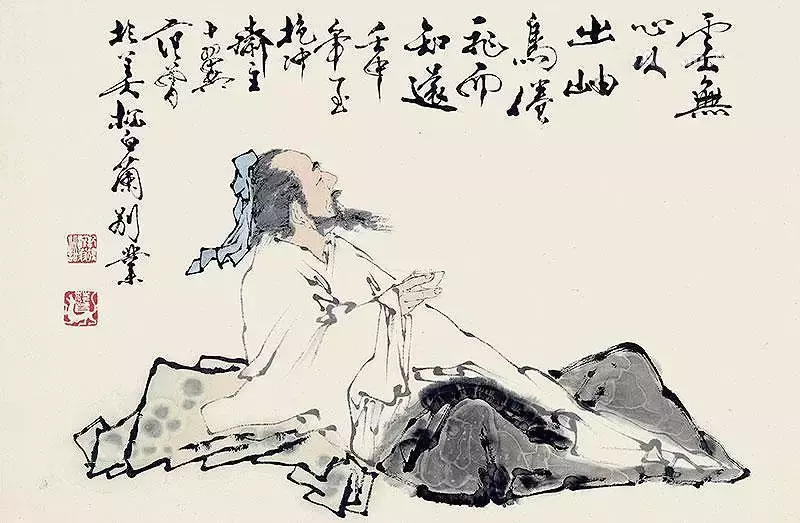 雲無
心以
出岫
鳥倦
飛而
知還
壬申
年
抱沖
齋主
十翼
范曾
於美松白蘭別業